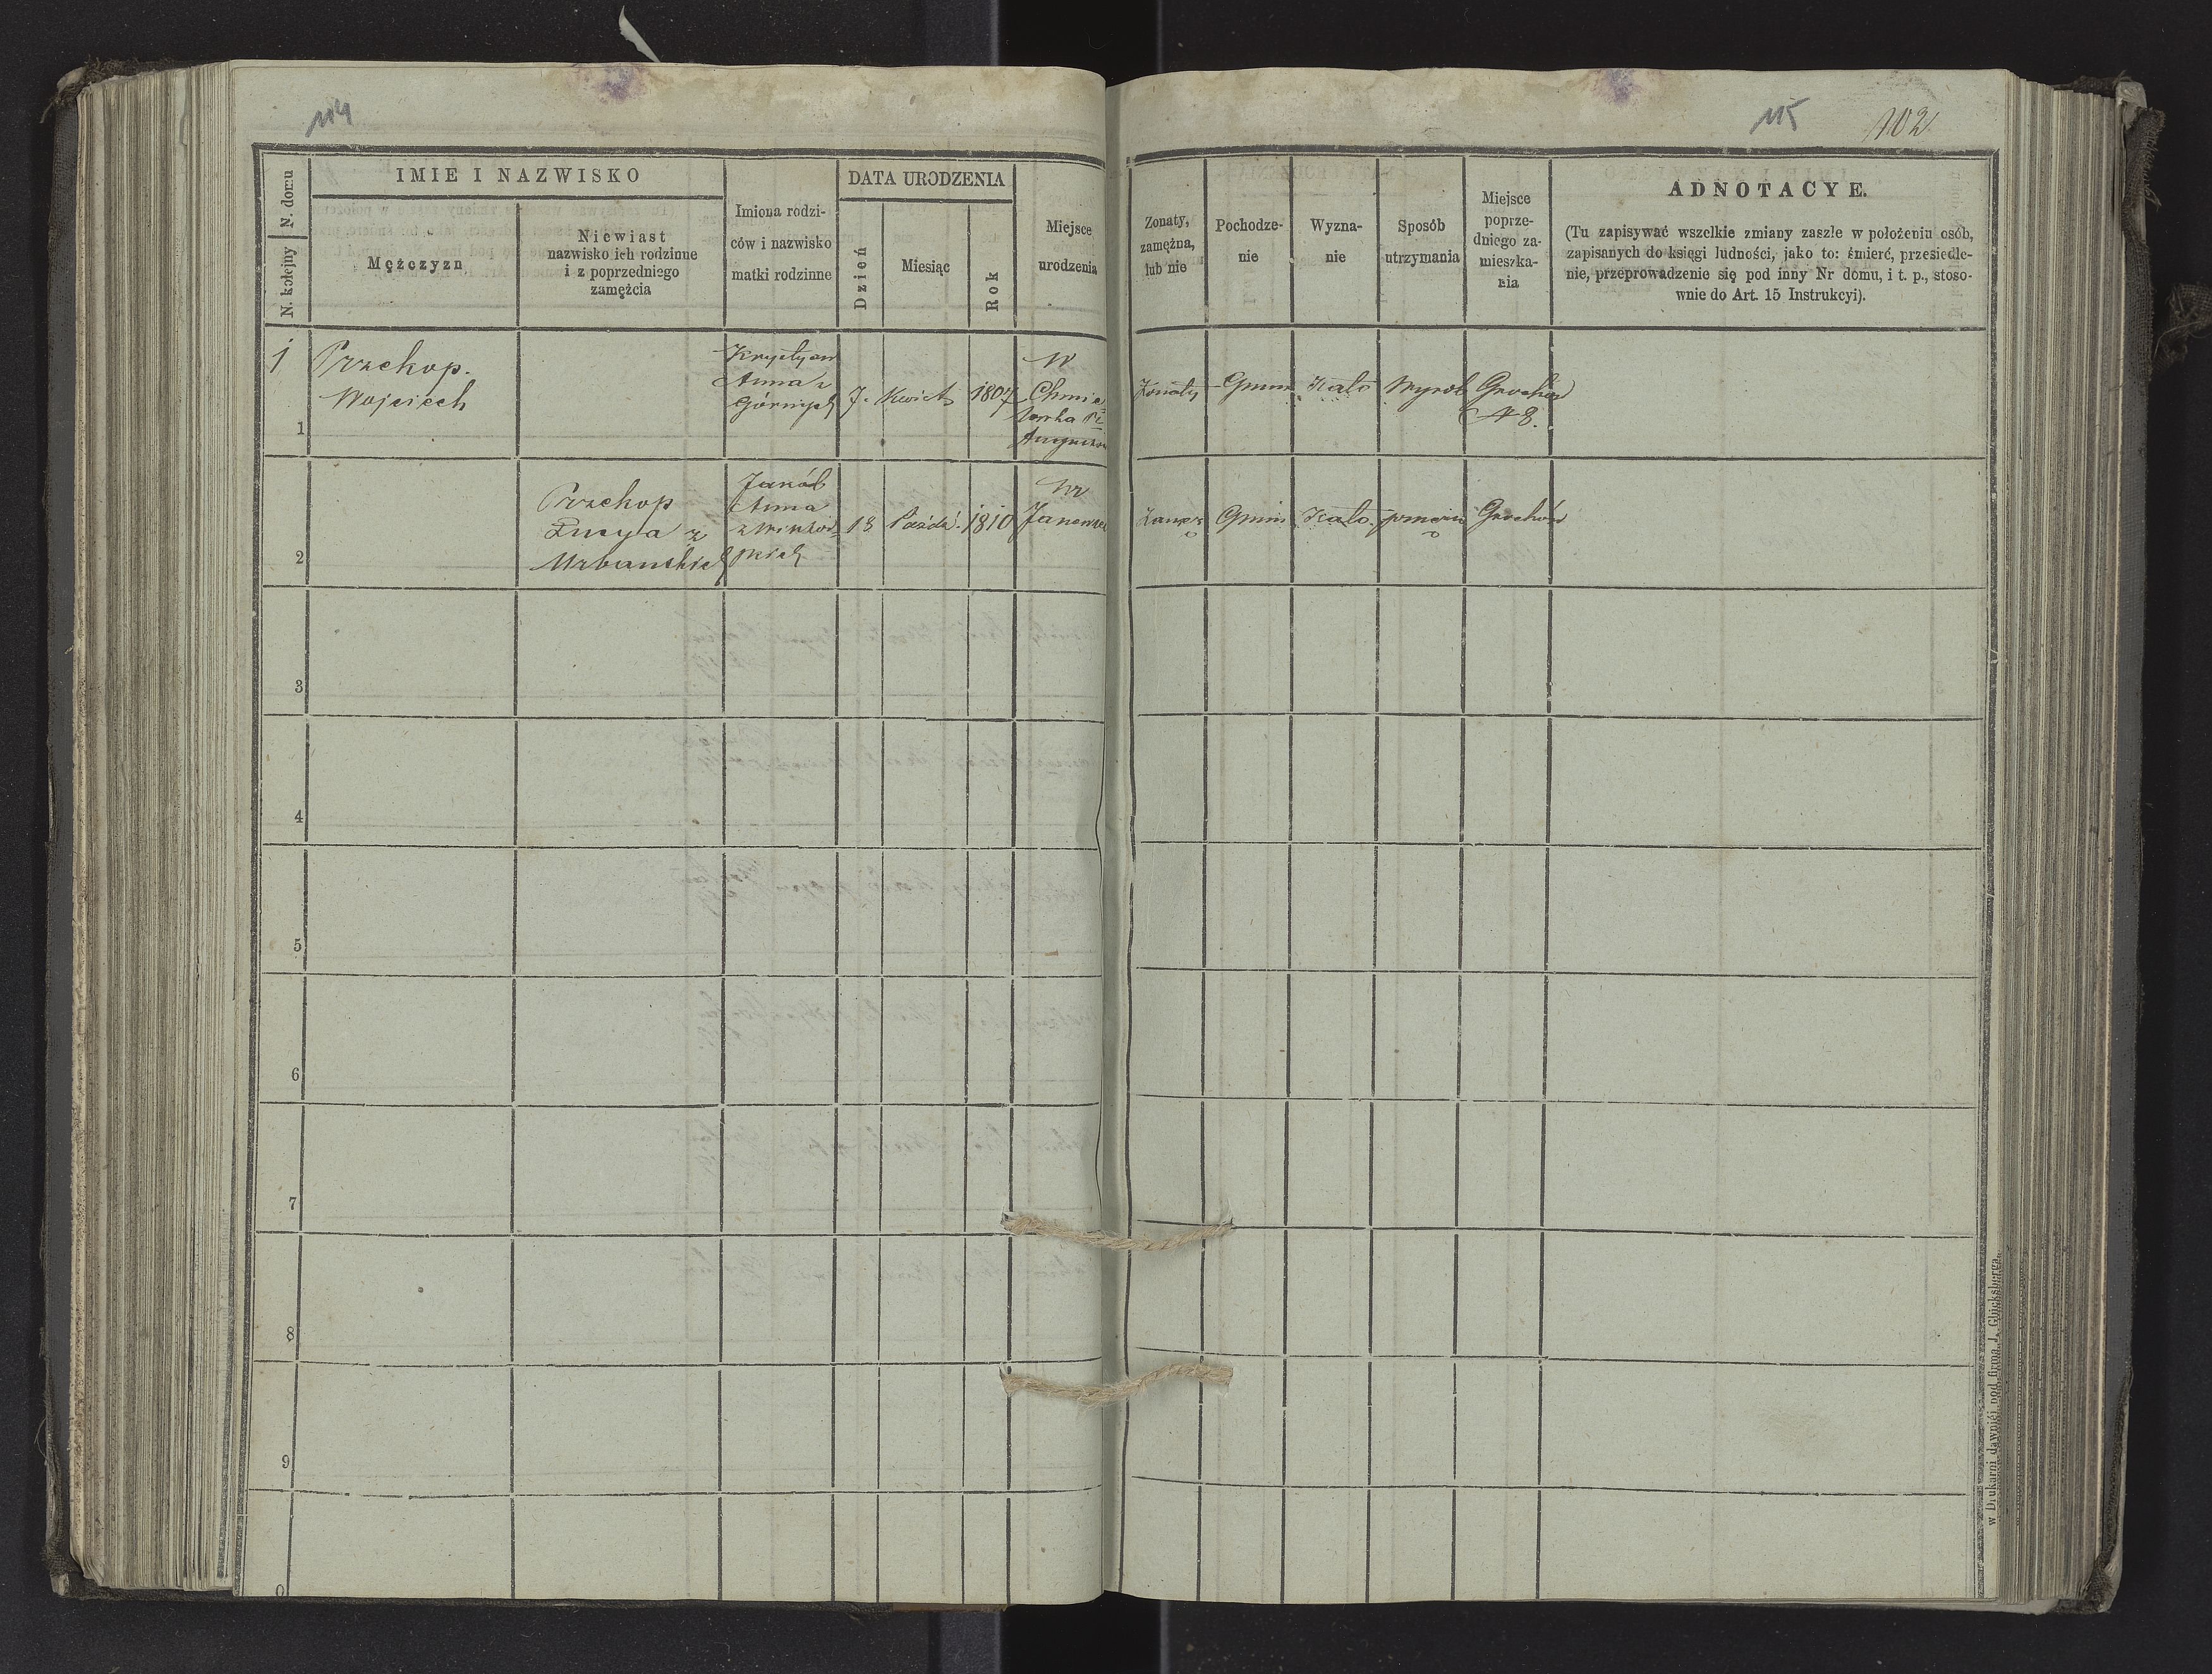 114
115
102
N. domu
N. kolejny
IMIE I NAZWISKO
Mężczyzn
Niewiast
nazwisko ich rodzinne
i z poprzedniego
zamęźcia
Imiona rodzi-
ców i nazwisko
matki rodzinne
DATA URODZENIA
Dzień
Miesiąc
Rok
Miejsce
urodzenia
Zonaty,
zamężna,
lub nie
Pochodze-
nie
Wyzna-
nie
Sposób
utrzymania
Miejsce
poprze-
dniego za-
mieszka-
nia
ADNOTACYE.
(Tu zapisywać wszelkie zmiany zaszłe w położeniu osób,
zapisanych do księgi ludności, jako to: śmierć, przesiedle-
nie, przeprowadzenie się pod inny Nr domu, i t. p., stoso-
wnie do Art. 15 Instrukcyi).
1
1
Przekop.
Wojciech
Krystyan
Anna z
Górnych
7.
Kwiet
1807
w
Chmie
Żonaty
Gmin
Kato
Wyrob
Grochów
N 8.
2
Przekop
Łucya z
Urbanskich
Jakób
Anna
13
Paźdź.
1810
w
Gmin
Kato.
Grochów
3
4
5
6
7
8
9
0
w Drukarni dawniéj pod firmą J. Glücksberga.